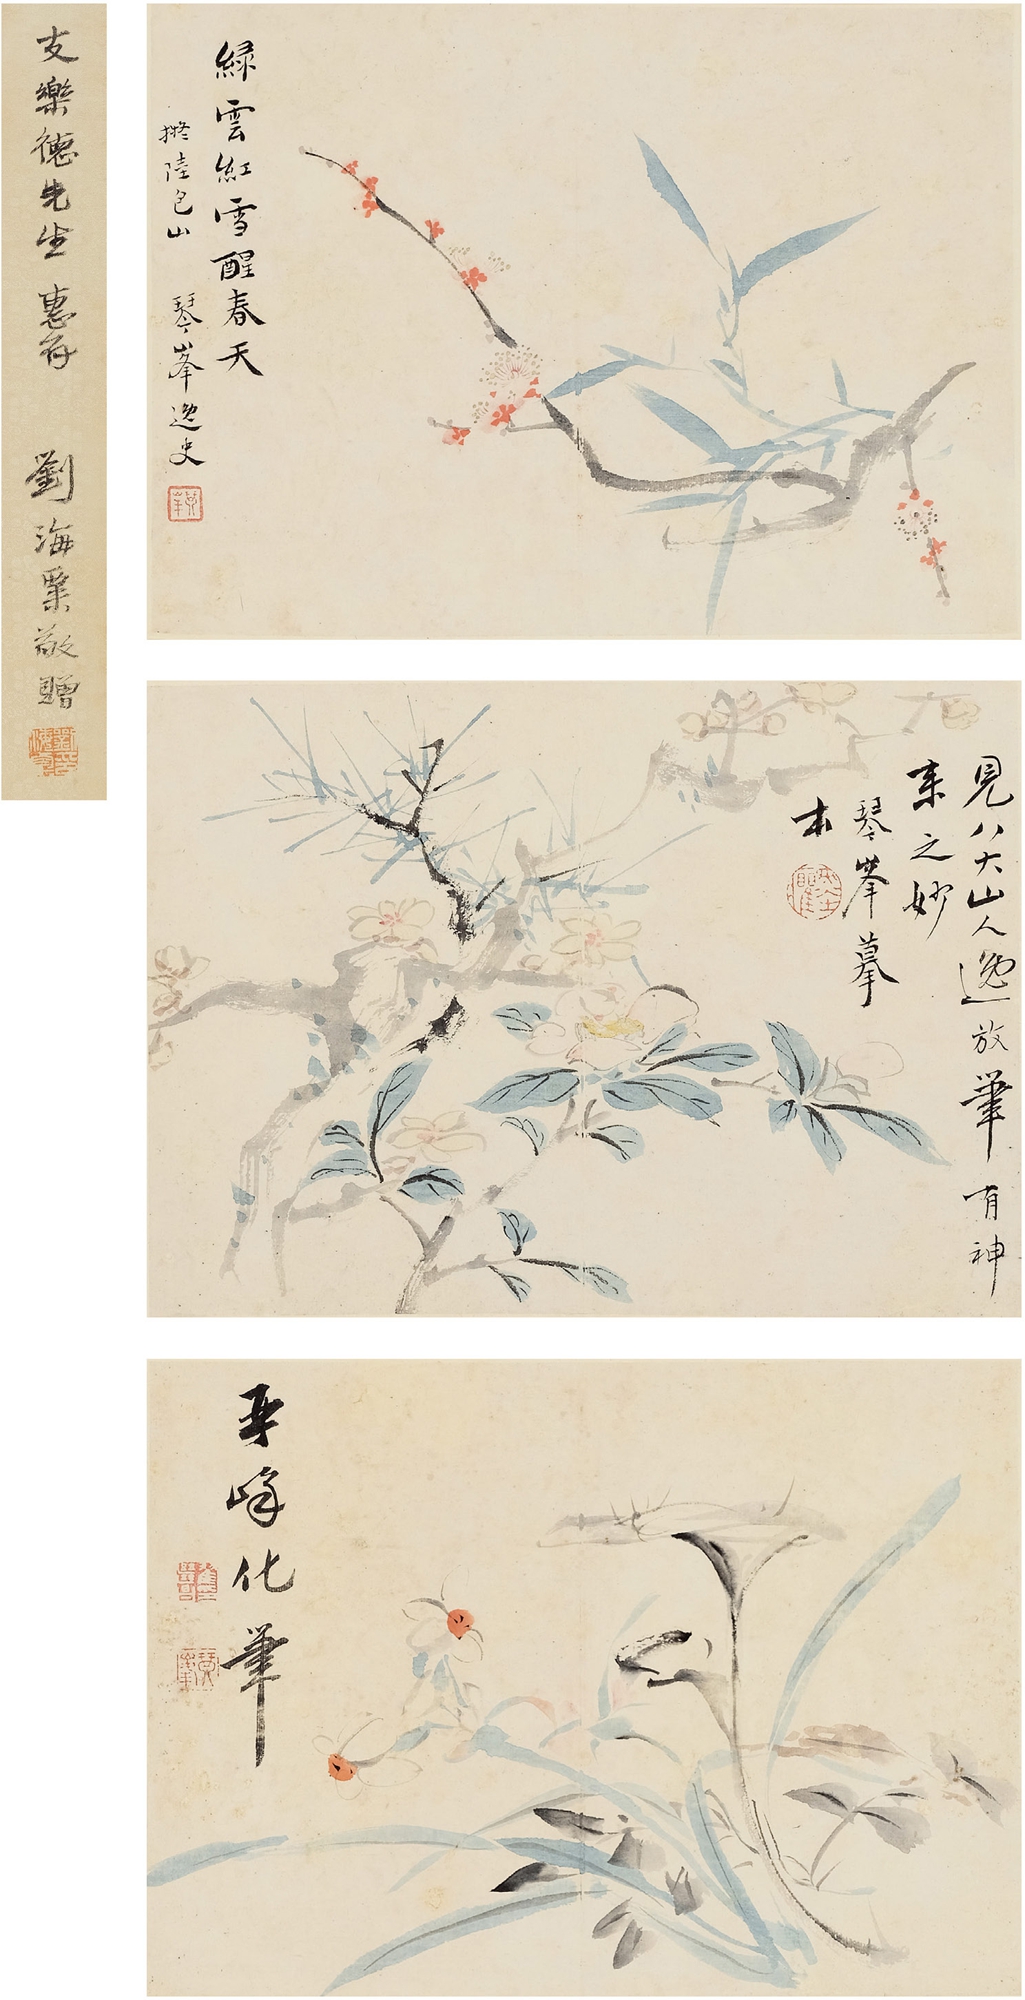 支樂德先生惠存
劉海粟敬贈
綠雲紅雪醒春天
擬陸包山
琴峯逸史
見八大山人逸放筆有神
來之妙
琴峯摹
本
平峰化筆